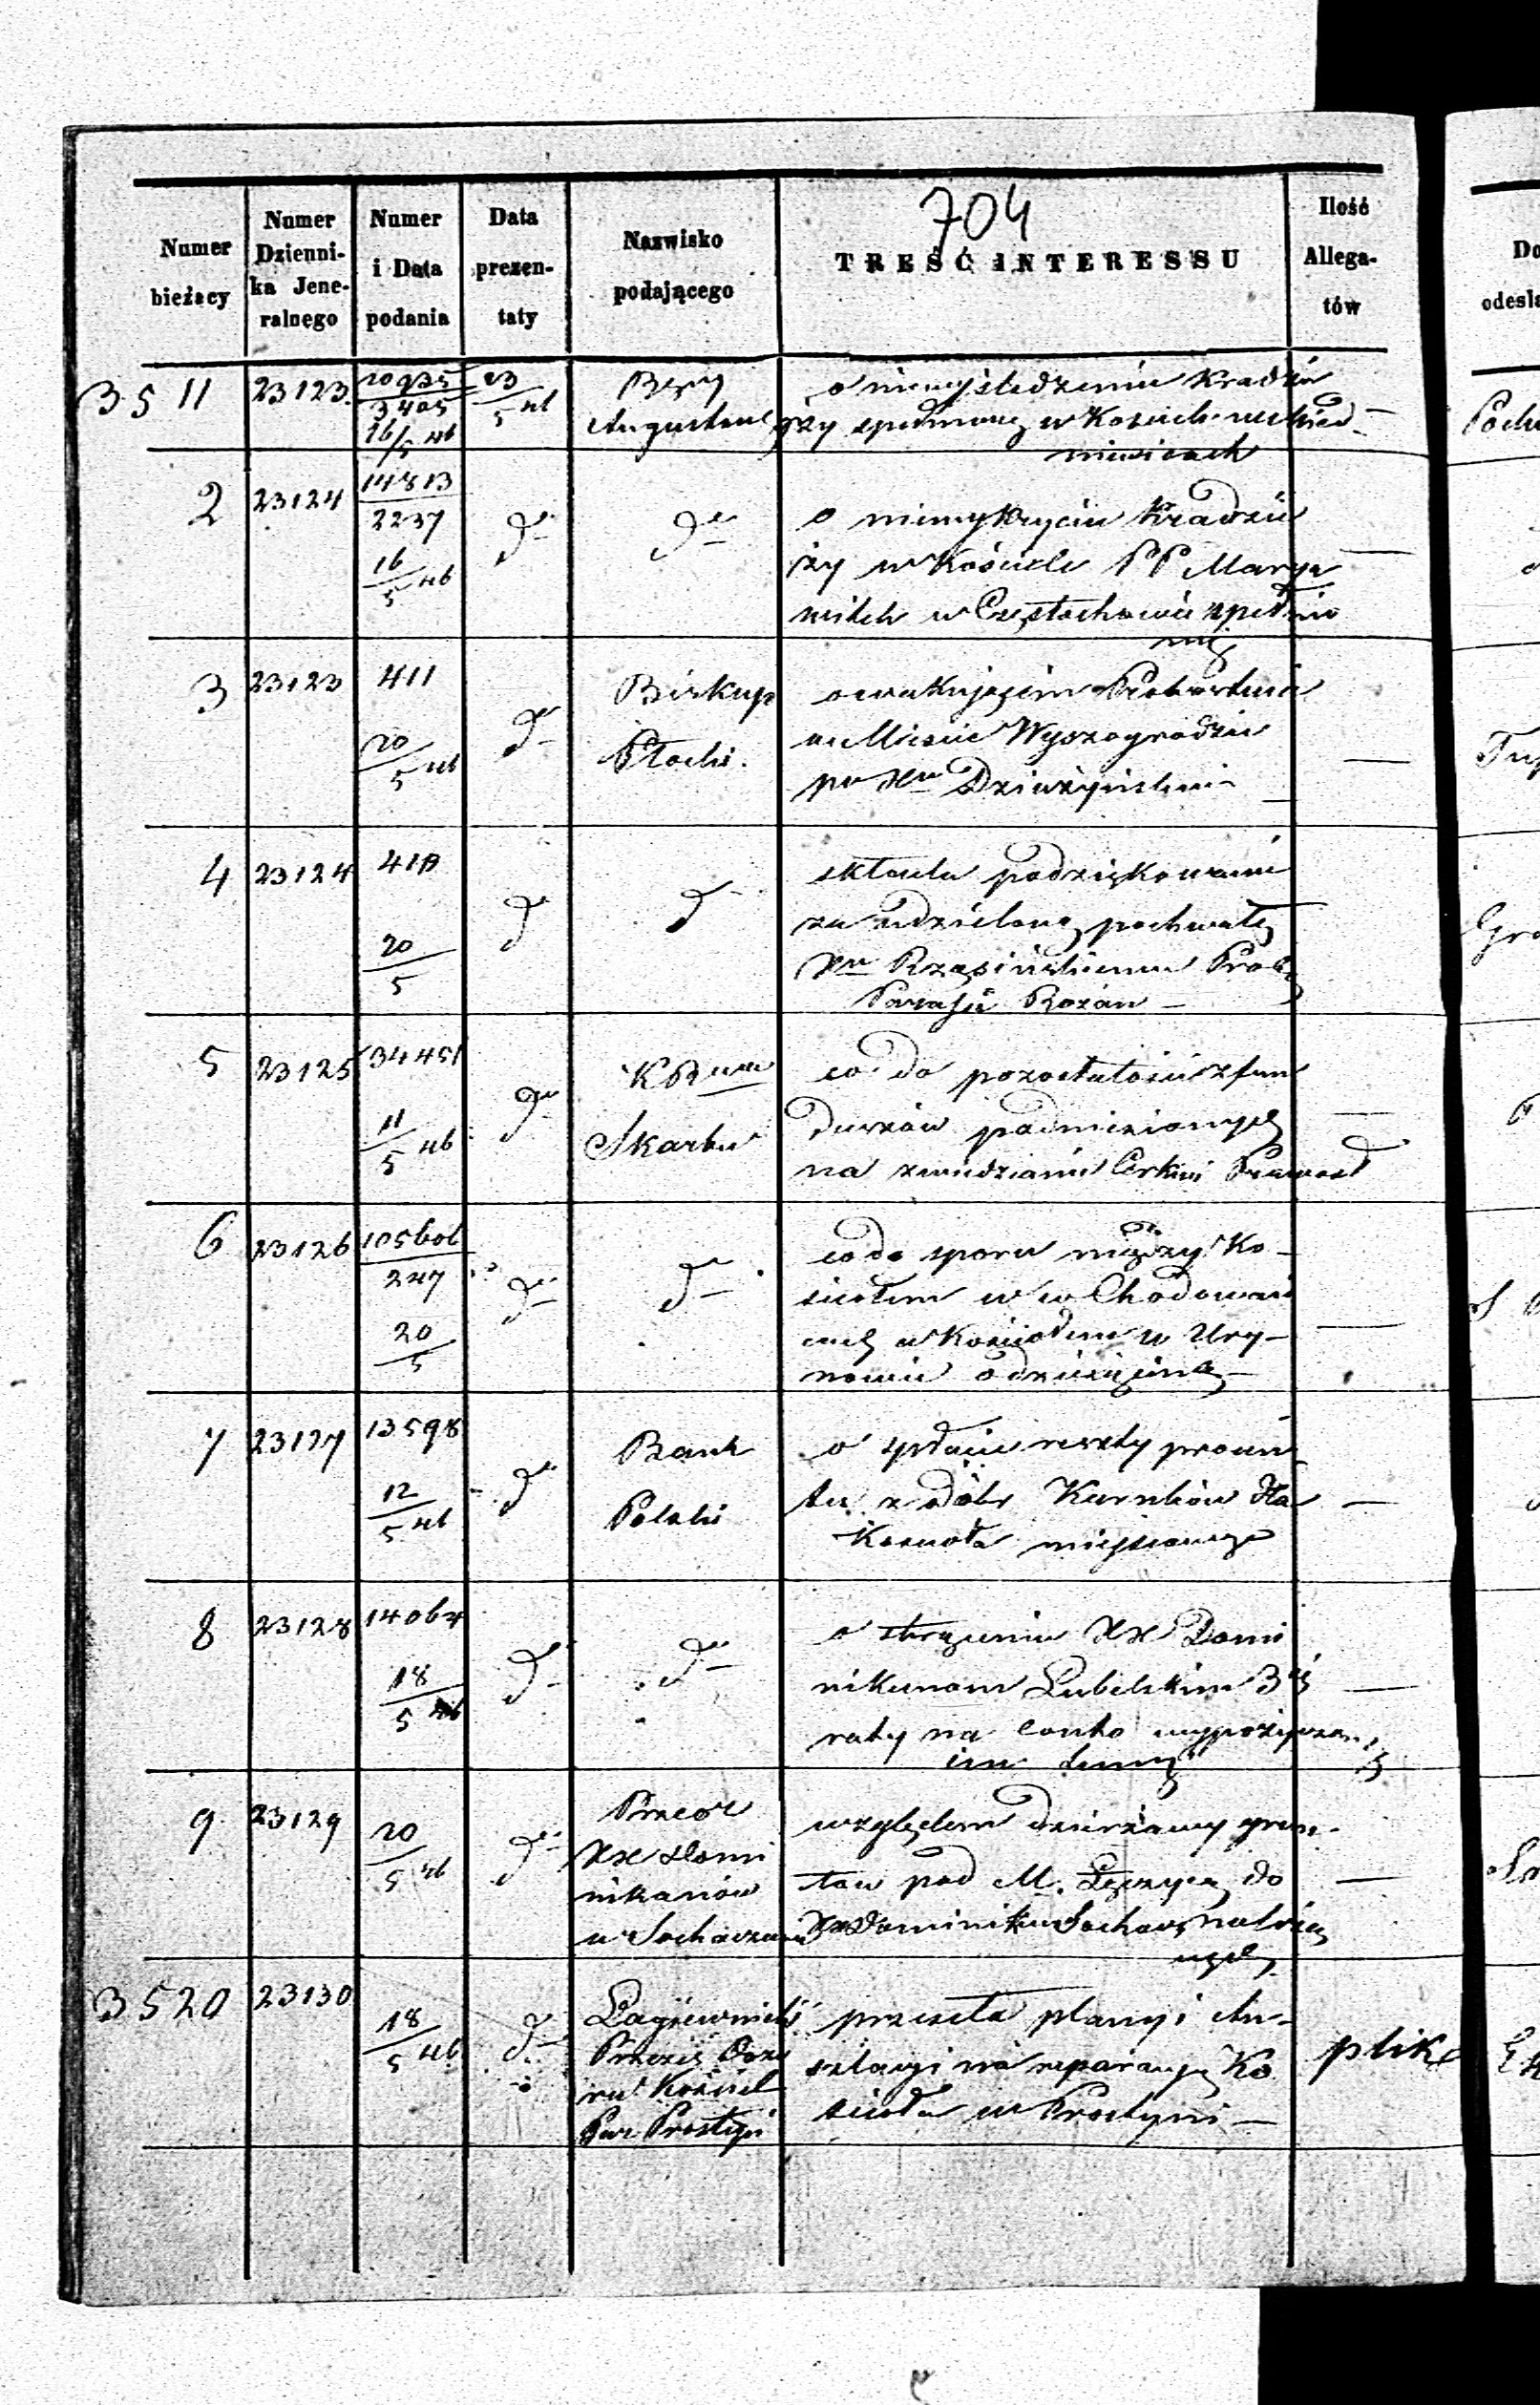 704
Numer bieżący
Numer Dzienni-ka Jene-ralnego
Numer i Data podania
Data prezen-taty
Nazwisko podającego
TREŚĆ INTERESSU
Ilość Allega-tów
3511 23123 20935/3405 16/5 46 23/5 46
Augustows
o niewyśledzeniu Kradzie
ży spełnionej w Kościele
niewicach
2 23124 14813/2237 16/5 46 do do
o niewykryciu Kradzie
ży w Kościele PP Marya
witek w Częstochowie spełnio
nej
3 23123 411 20/5 46 do
Biskup
Płocki.
o wakującem Probostwie
w Mieście Wyszogrodzie
po Xu
4 23124 418 20/5 do d
składa podziękowanie
za udzieloną pochwałę
Xu Rzęsińskiemu Prob
Parafii Rożan —
5 23125 34451 11/5 46 do
KR
Skarbu
co do pozostałości z fun
duszów podniesionych
na zwiedzanie Cerkwi Prawosł
6 23126 105606/247 20/5 do do
co do sporu między Ko-
ściołem w Chodowa
a Kościołem w Ury-
nowie o dziesięcinę —
7 23127 13598 12/5 46 do
Bank
Polski
o spłacie reszty procen
tu z dóbr dla
Kościoła miejscowego
8 23128 14064 18/5 46 do do
o XX Domi
nikanom Lubelskim 3ej
raty na conto wypożyczon
im sumy
9 23129 20/5 46 do
Przeor
XX Domi
nikanów
w Sochaczewie
względem dzierżawy grun-
tów pod M. Łęczycą do
XX Dominikan Sochacz należą
cych
3520 23130 18/5 46 do
Łagiewnicki
Prezes Dozo
ru Kościel
Par Prostyń
przesyła plany i An-
szlagi na reparacyę Ko
ścioła w Prostyni —
plik